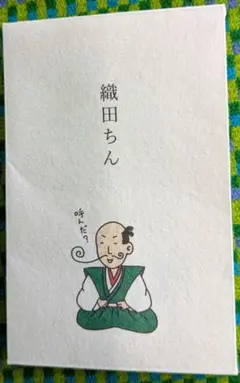 織田ちん
呼んだ?